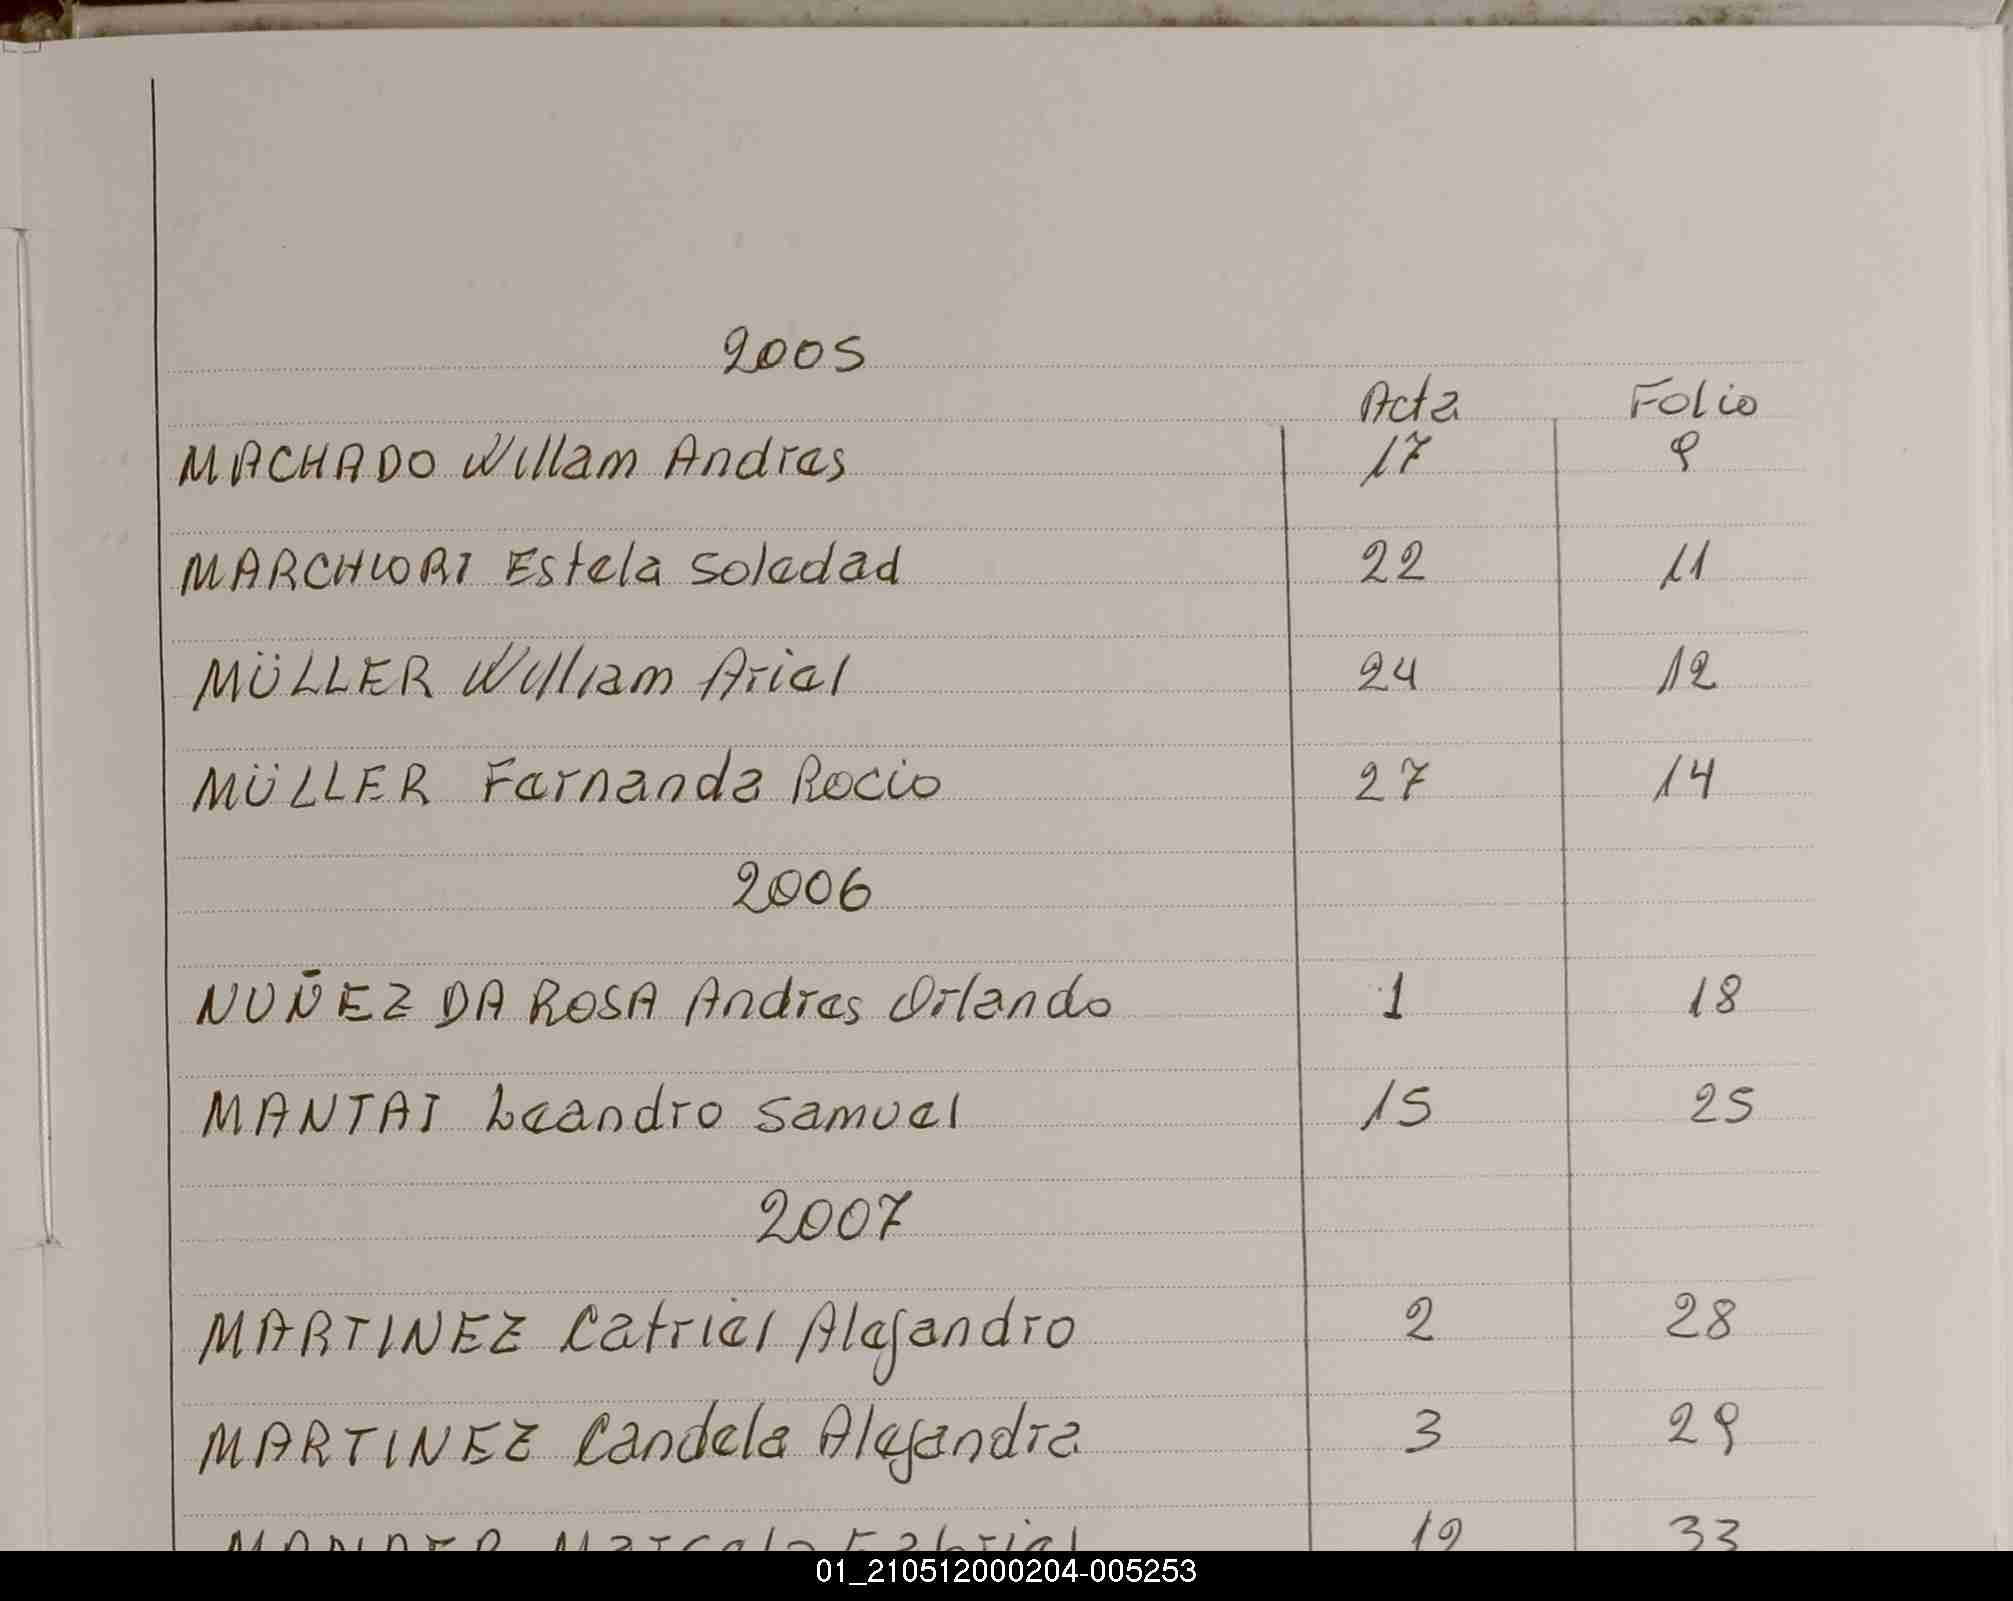 2005
Acta Folio
MACHADO Willam Andres 17 9
MARCHIORI Estela Soledad 22 11
MÜLLER William Ariel 24 12
MÜLLER Fernanda Rocio 27 14
2006
NUÑEZ DA ROSA Andres Orlando 1 18
MANTAI Leandro Samuel 15 25
2007
MARTINEZ Catriel Alejandro 2 28
MARTINEZ Candela Alejandra 3 29
Marcelo Fabriel 33
01_210512000204-005253